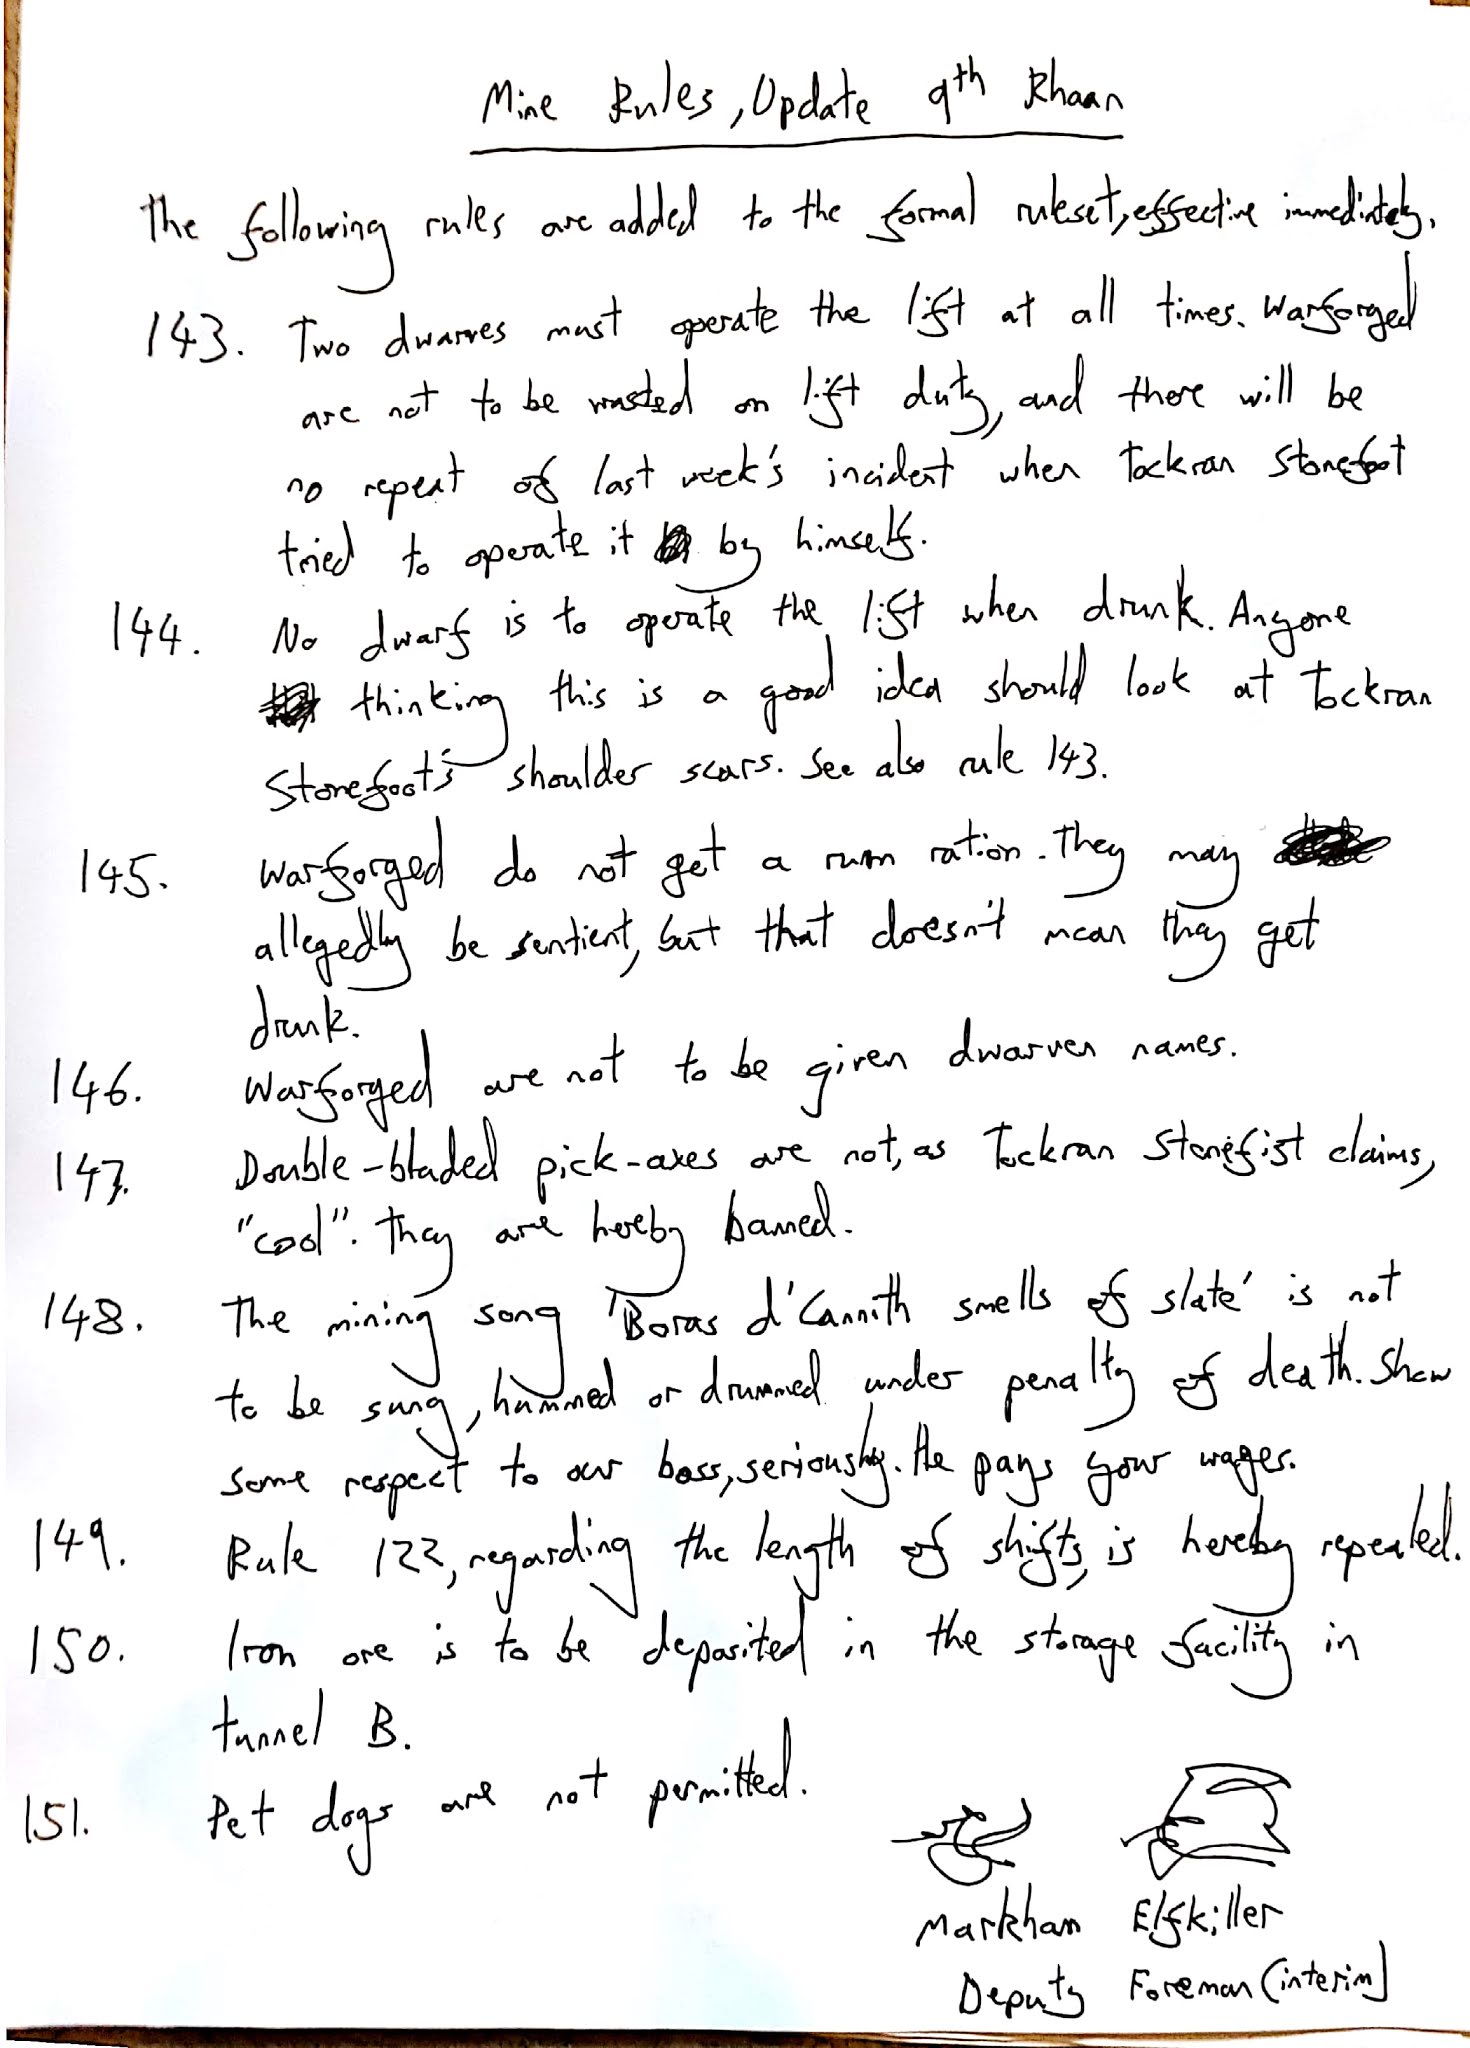 Mine Rules, Update 9th Rhaan
The following rules are added to the formal ruleset, effective immediately.
143. Two dwarves must operate the lift at all times. Warforged
are not to be wasted on lift duty, and there will be
no repeat of last week's incident when Tockran Stonefoot
tried to operate it by himself.
144. No dwarf is to operate the lift when drunk. Anyone
thinking this is a good idea should look at Tockran
Stonefoot's shoulder scars. See also rule 143.
145. Warforged do not get a rum ration. They may
allegedly be sentient, but that doesn't mean they get
drunk.
146. Warforged are not to be given dwarven names.
147. Double-bladed pick-axes are not, as Tockran Stonefist claims,
"cool". They are hereby banned.
148. The mining song 'Boras d'Cannith smells of slate' is not
to be sung, hummed or drummed under penalty of death. Show
some respect to our boss, seriously. He pays your wages.
149. Rule 122, regarding the length of shifts, is hereby repealed.
150. Iron ore is to be deposited in the storage facility in
tunnel B.
151. Pet dogs are not permitted.
Markham Elfkiller
Deputy Foreman (interim)